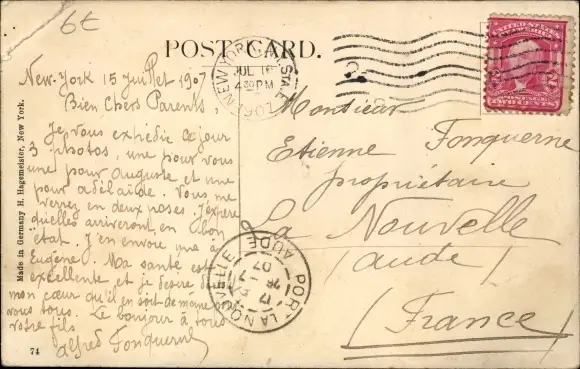 6€
POST CARD.
NEW YORK, N.Y. STA.
JUL 16
4 30 PM
1907
UNITED STATES OF AMERICA
TWO CENTS
New-York 15 juillet 1907
Bien Chers Parents,
Je vous expédie ce jour
3 photos, une pour vous
une pour auguste et une
pour adélaïde. Vous me
verrez en deux poses. J'espère
qu'elles arriveront en bon
état. J'en envoie une à
Eugène. Ma santé est
excellente et je désire de
mon cœur qu'il en soit de même pour
vous tous. Le bonjour à tous
Votre fils
Alfred Fonquerne
Monsieur
Etienne Fonquerne
propriétaire
La Nouvelle
(aude)
(France)
PORT LA NOUVELLE
AUDE
07
Made in Germany H. Hagemeister, New York.
74